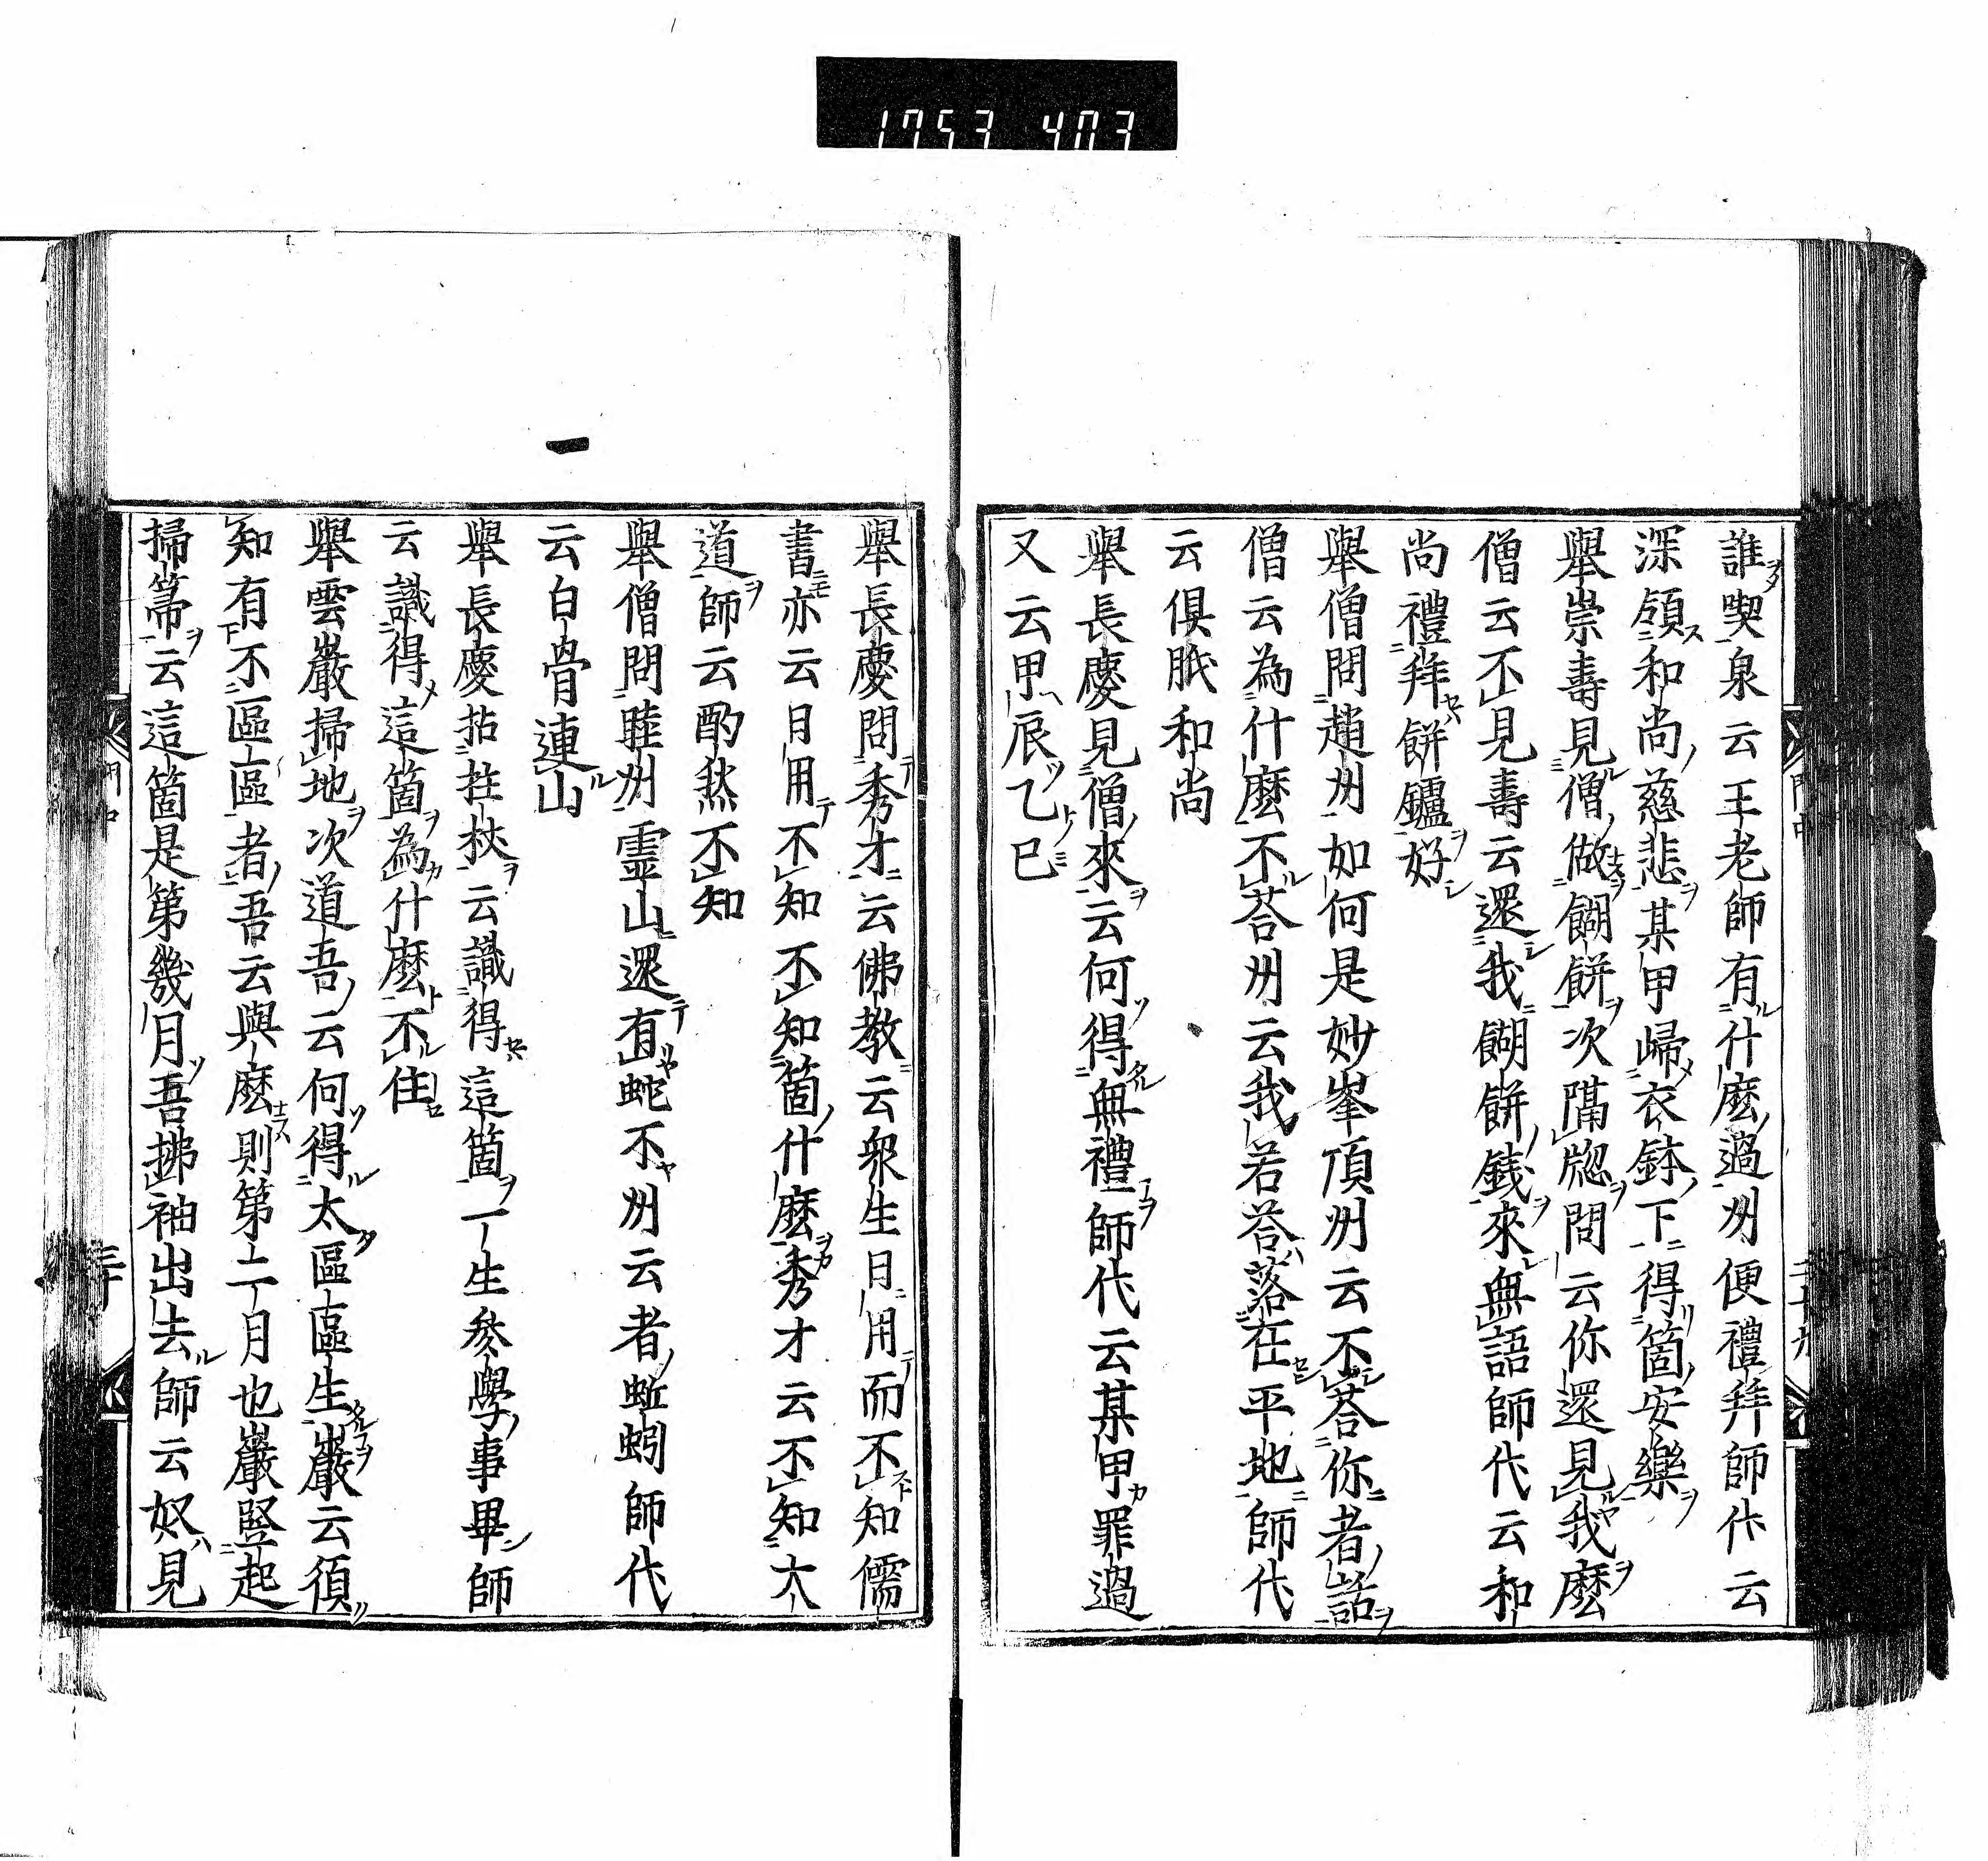 1753 403
誰喫泉云王老師有什麽過州便禮拜師代云
深領和尚慈悲某甲歸衣鉢下得箇安樂
舉崇壽見僧做餬餅次隔牕問云你還見我麽
僧云不見壽云還我餬餅錢來無語師代云和
尚禮拜餅鑪好
舉僧問趙州如何是妙峯頂州云不荅你者話
僧云為什麽不荅州云我若荅落在平地師代
云俱胝和尚
舉長慶見僧來云何得無禮師代云某甲罪過
又云甲辰乙巳
舉長慶問秀才云佛教云衆生日用而不知儒
書亦云日用不知不知箇什麽秀才云不知大
道師云酌然不知
舉僧問睦州靈山還有蛇不州云者蚯蚓師代
云白骨連山
舉長慶拈拄杖云識得這箇一生叅學事畢師
云識得這箇為什麽不住
舉雲巖掃地次道吾云何得太區區生巖云須
知有不區區者吾云與麽則第二月也巖竪起
掃箒云這箇是第幾月吾拂袖出去師云奴見
三十